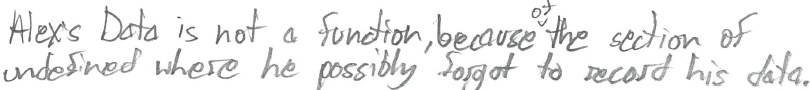 Alex's Data is not a function, because of the section of
undefined where he possibly forgot to record his data.